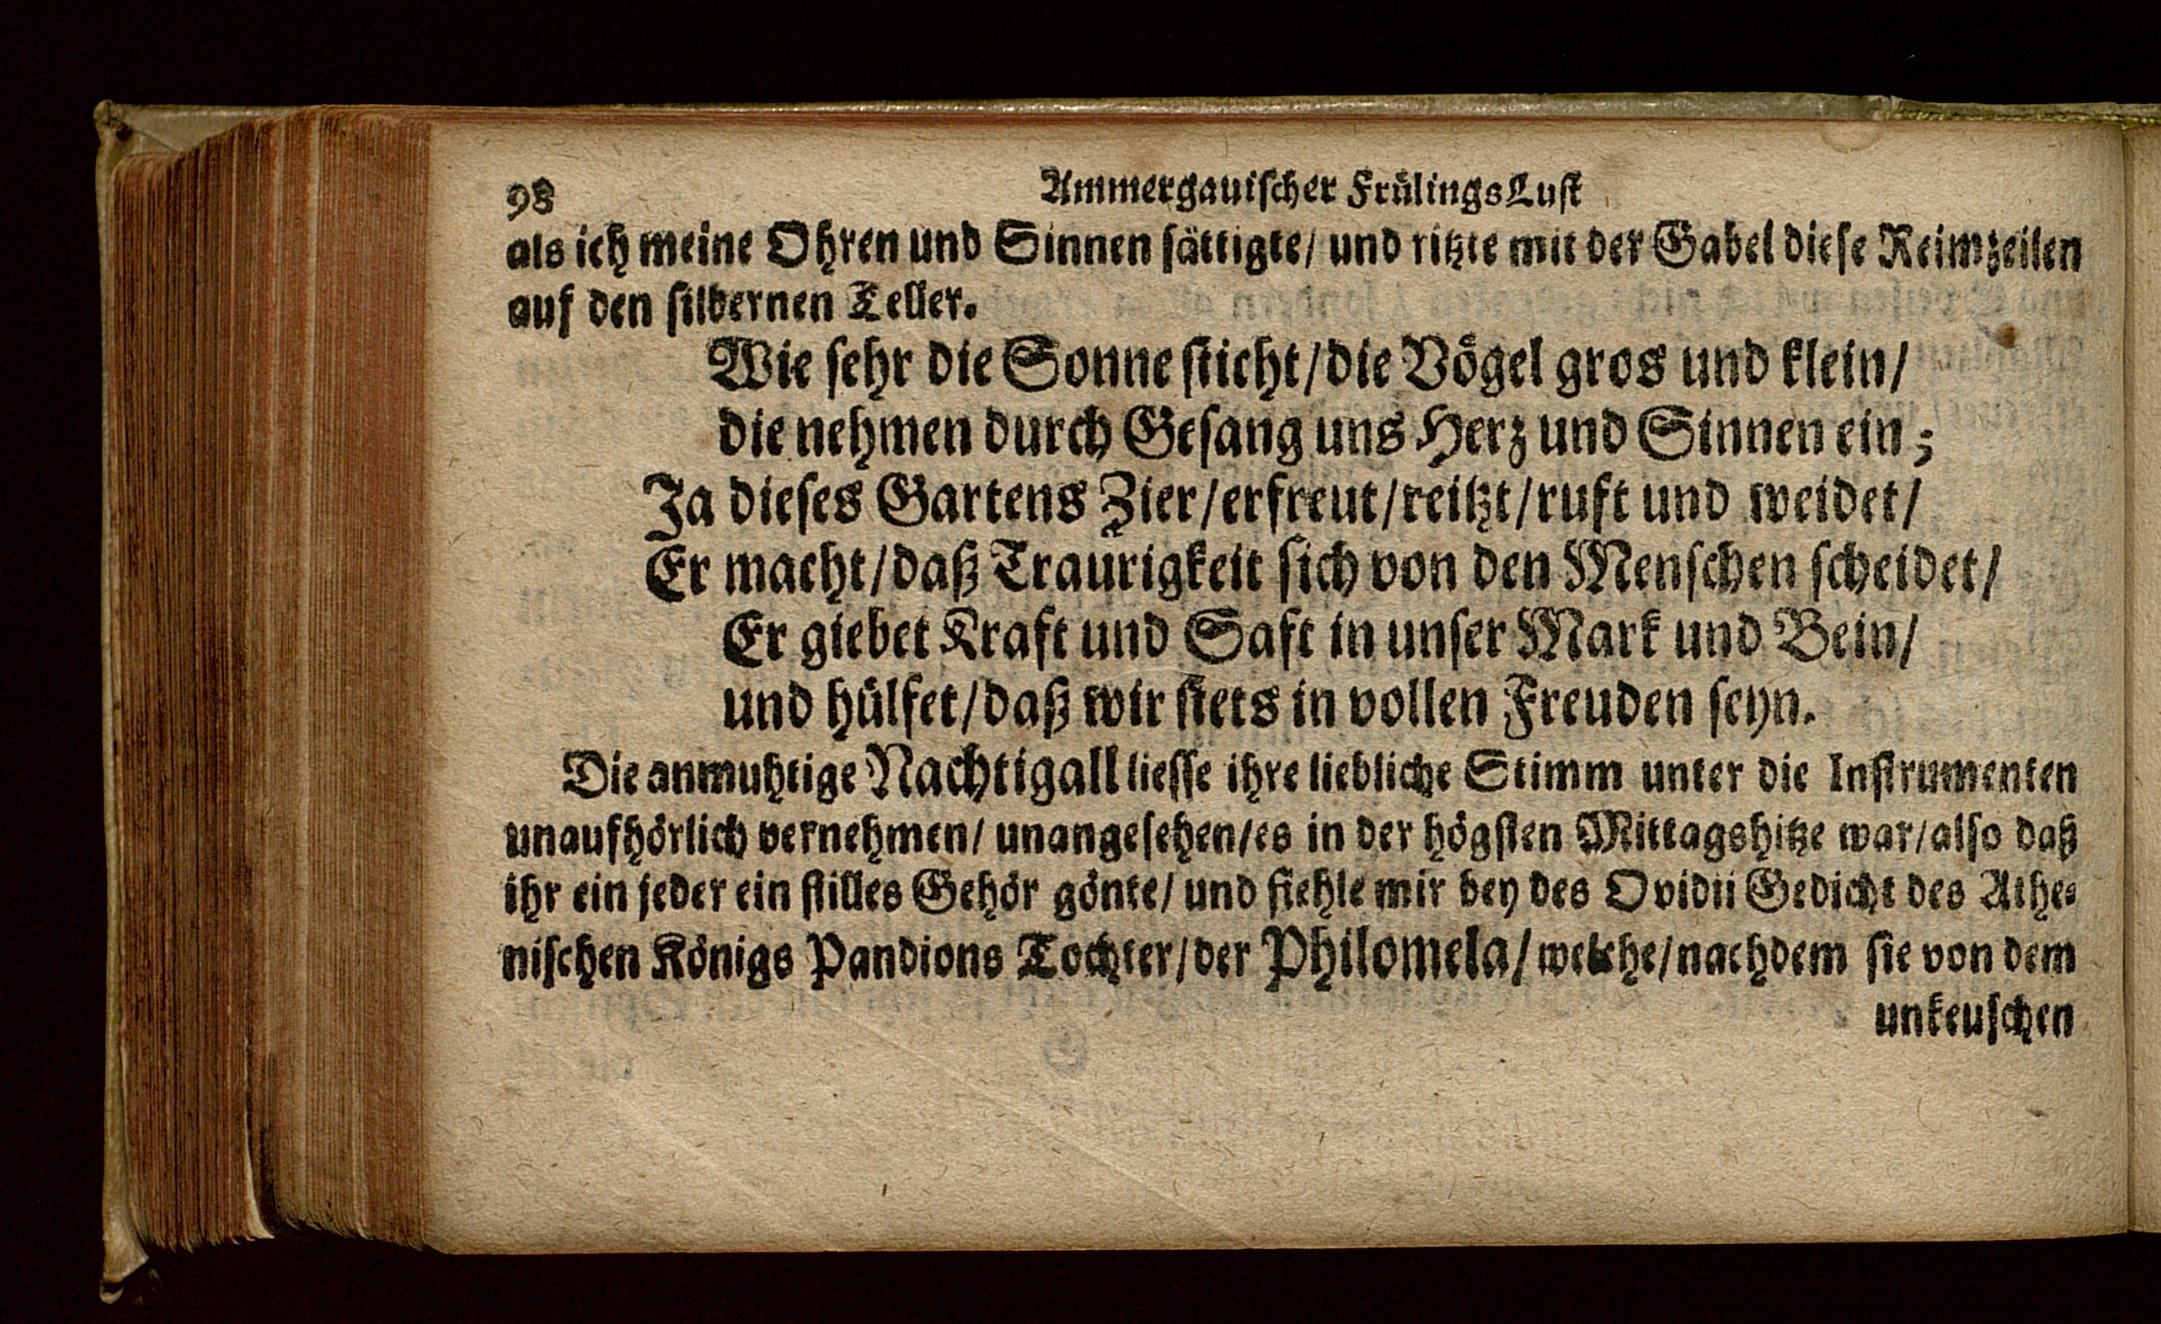 98 Ammergauischer FrülingsLust
als ich meine Ohren und Sinnen sättigte/ und ritzte mit der Gabel diese Reimzeilen
auf den silbernen Teller.
Wie sehr die Sonne sticht/die Vögel gros und klein/
die nehmen durch Gesang uns Herz und Sinnen ein;
Ja dieses Gartens Zier/erfreut/reitzt/ruft und weidet/
Er macht/daß Traurigkeit sich von den Menschen scheidet/
Er giebet Kraft und Saft in unser Mark und Bein/
und hülfet/daß wir stets in vollen Freuden seyn.
Die anmuhtige Nachtigall liesse ihre liebliche Stimm unter die Instrumenten
unaufhörlich vernehmen/ unangesehen/es in der högsten Mittagshitze war/also daß
ihr ein jeder ein stilles Gehör gönte/ und fiehle mir bey des Ovidii Gedicht des Athe-
nischen Königs Pandions Tochter/der Philomela/welche/nachdem sie von dem
unkeuschen